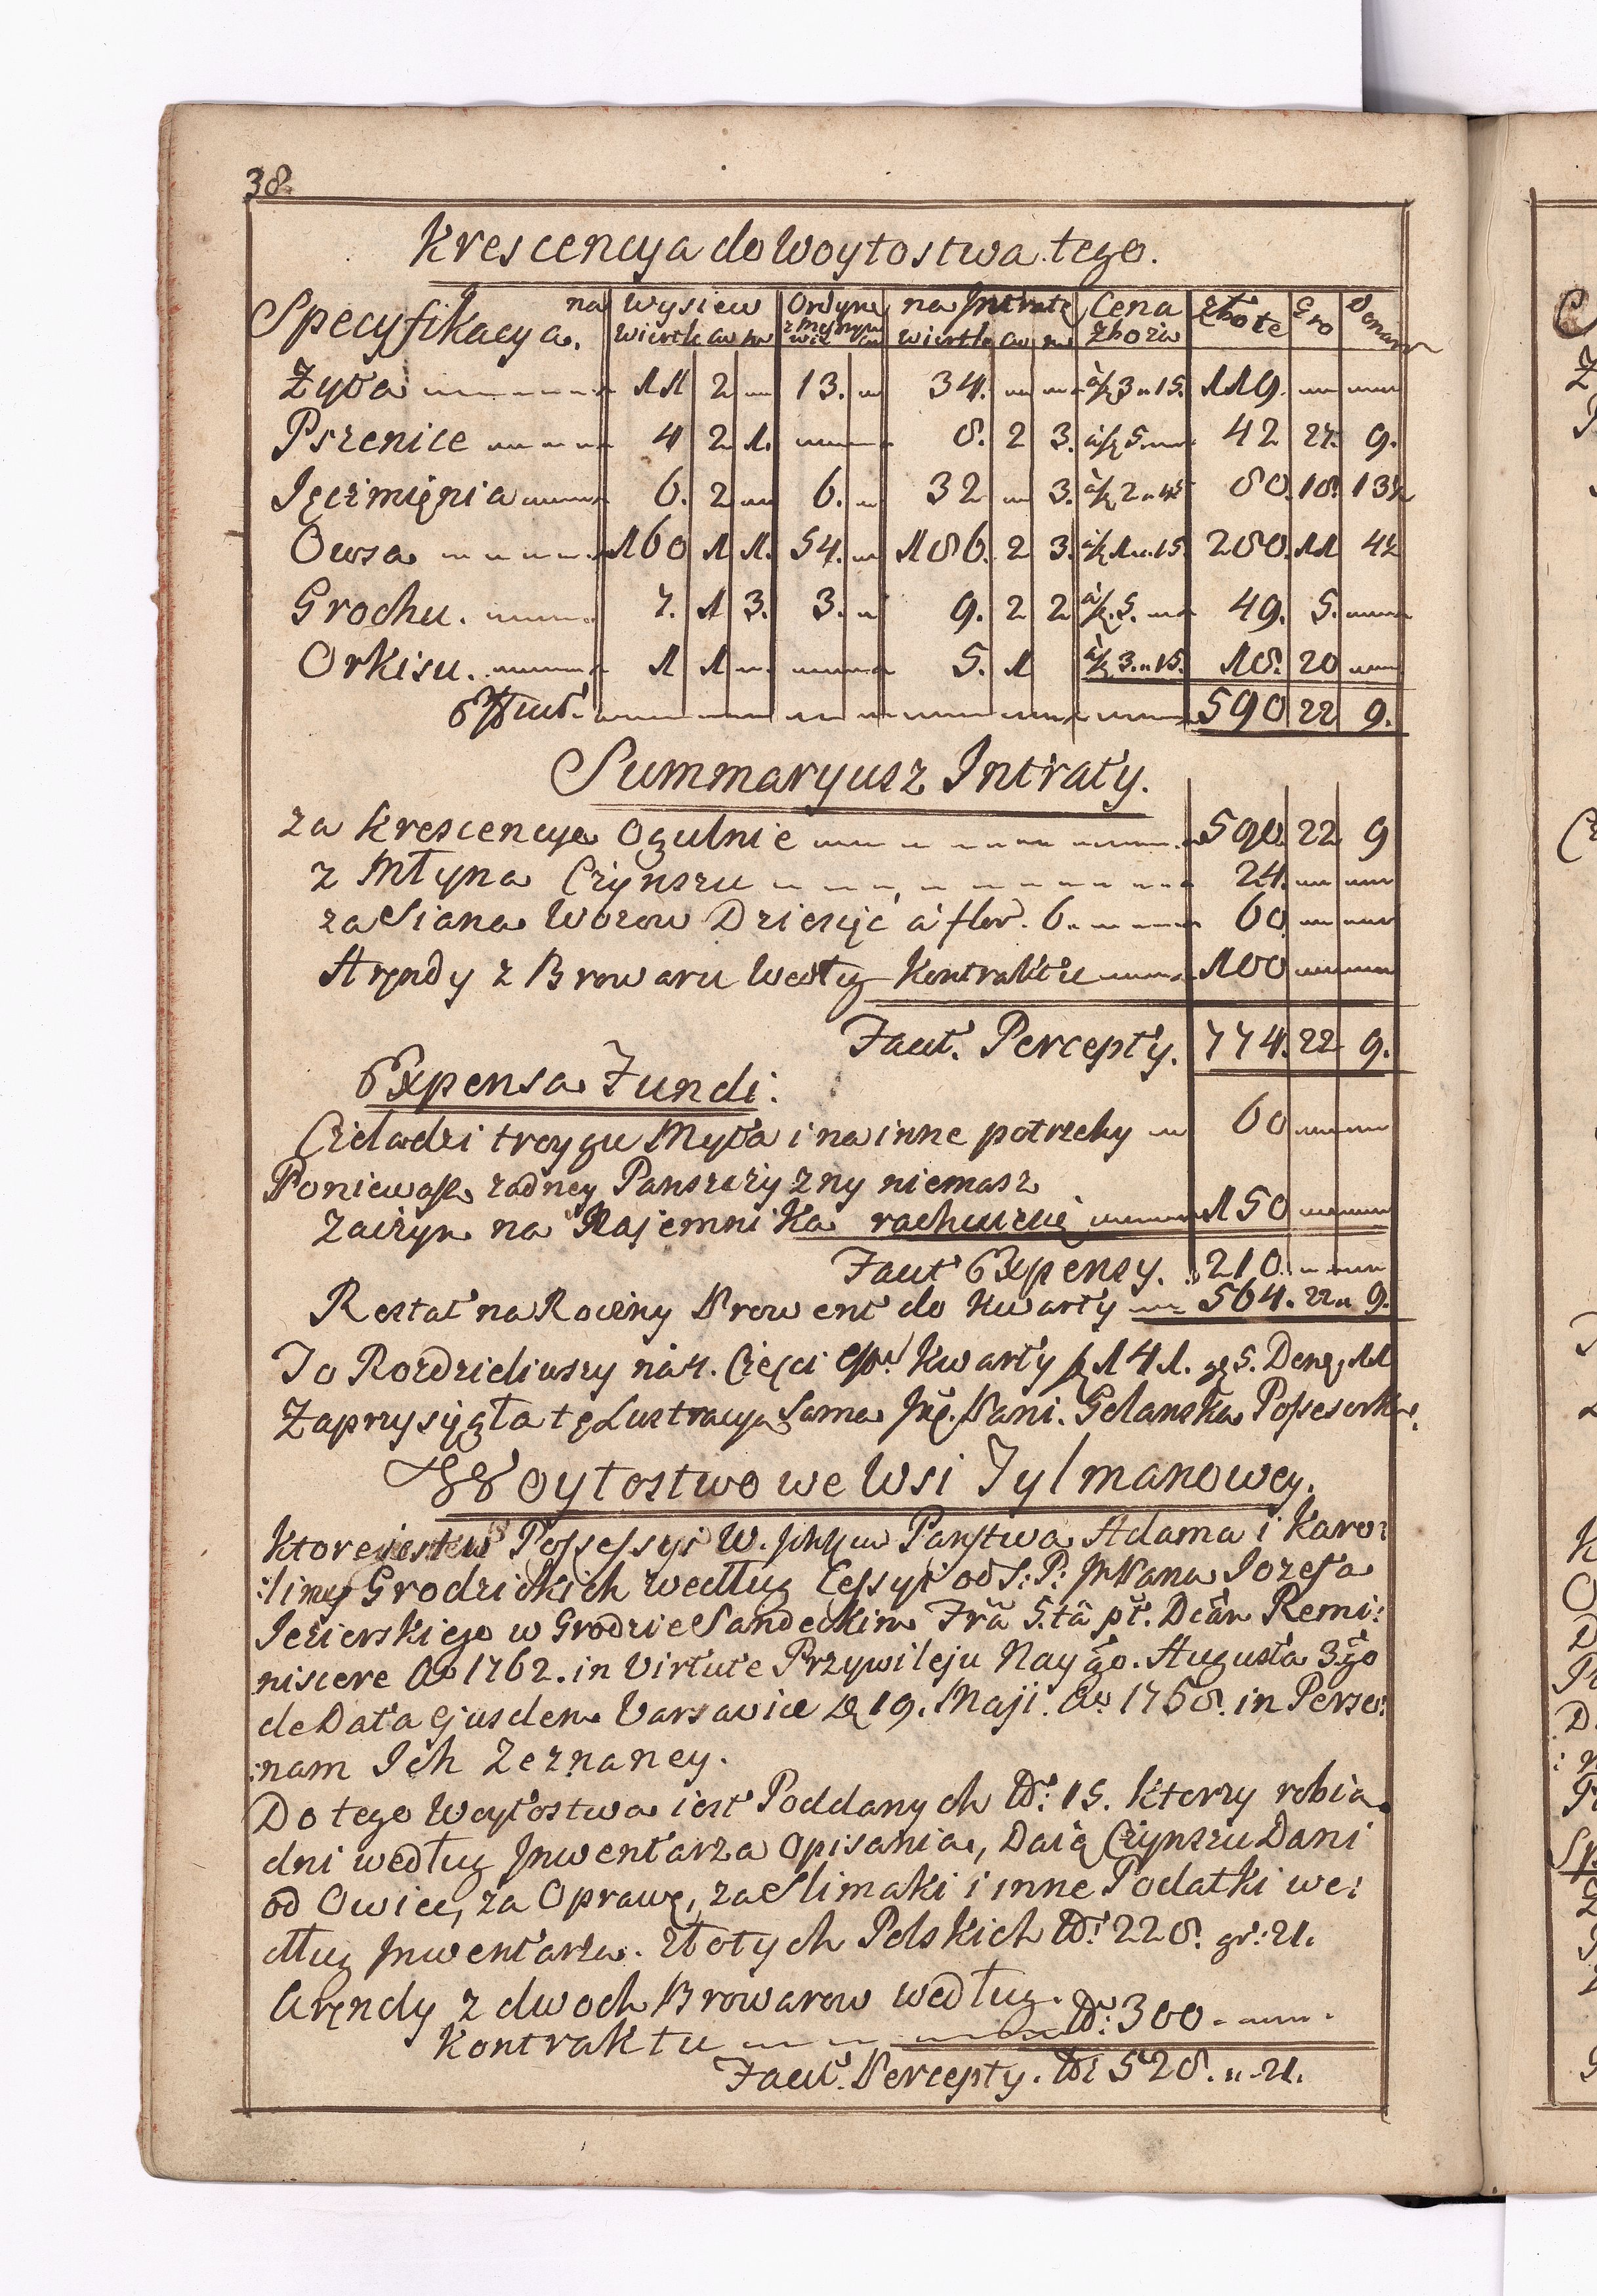 38.
Krescencya do Woytostwa tego.
Specyfikacya. na Wysiew Ordyn. na Intratę Cena Złote Gro Denar
wiertle cw m wier cw wiertle cw m Zboża
Zyta 11 2 13. 34. à ƶ 3 „ 15. 119.
Pszenice 4 2 1. 8. 2 3. à ƶ 5. 42 27. 9.
Jęczmięnia 6. 2 6. 32 3. à ƶ 2 „ 15 80. 18. 13½
Owsa 160 1 1. 54. 186. 2 3. à ƶ 1 „ 15 280. 11 4½
Grochu. 7. 1 3. 3. 9. 2 2 à ƶ. 5. 49. 5.
Orkisu. 1 1 5. 1 à ƶ 3. „ 15. 18. 20
Efficit. 590 22 9.
Summaryusz Intraty.
za Krescencye Ogulnie 590. 22 9
z Młyna Czynszu 24.
za Siana Wozow Dziesięć à flor. 6. 60
Aręndy z Browaru Wedłg Kontraktu 100
Facit. Percepty. 774. 22 9.
Expensa Fundi.
Czeladzi troygu Myta i na inne potrzeby 60
Poniewasz żadney Panszczyzny niemasz
Zaczym na Najemnika rachuiesię 150
Facit Expensy. 210.
Restat na Roczny Prowent do Kwarty 564. 22 „ 9.
To Rozdzieliwszy na 4. Częsci Kwarty ƶ 141. gę 5. Denę. 11
Zaprzysięgła tę Lustracyą Sama Pani. Golanska Possesorka.
Woytostwo we Wsi Tylmanowey.
Ktore iest w Possessyi W. Ichm Państwa Adama i Karo:
:liney Grodzickich według Cessyi od S: P: Pana Jozefa
Jezierskiego w Grodzie Sandeckim Frã 5.tã pt. Dcãm Remi:
niscere Ao 1762. in Virtute Przywileju Nayggo. Augusta 3.go
de Data Ejusdem Varsaviæ D 19. Maji. Ao 1758. in Perso:
:nam Ich Zeznaney.
Do tego Woytostwa iest Poddanych No: 15. Ktorzy robią
dni według Inwentarza Opisania, Daią Czynszu Dani
od Owiec, za Oprawę, za Slimaki i inne Podatki we:
dług Inwentarza. Złotych Polskich No: 228. gr: 21.
Aręndy z dwoch Browarow według
Kontraktu No: 300.
Facit. Percepty. No: 528. „ 21.